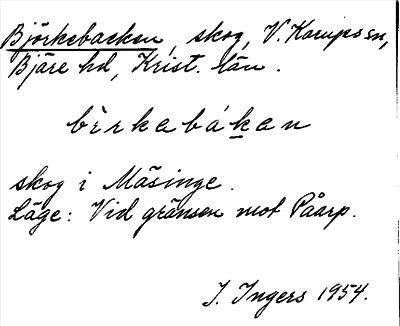 Björkebacken, skog, V. Karups sn,
Bjäre hd, Krist. län.
bèrkebákan
skog i Mäsinge.
Läge: Vid gränsen mot Påarp.
I. Ingers 1954.